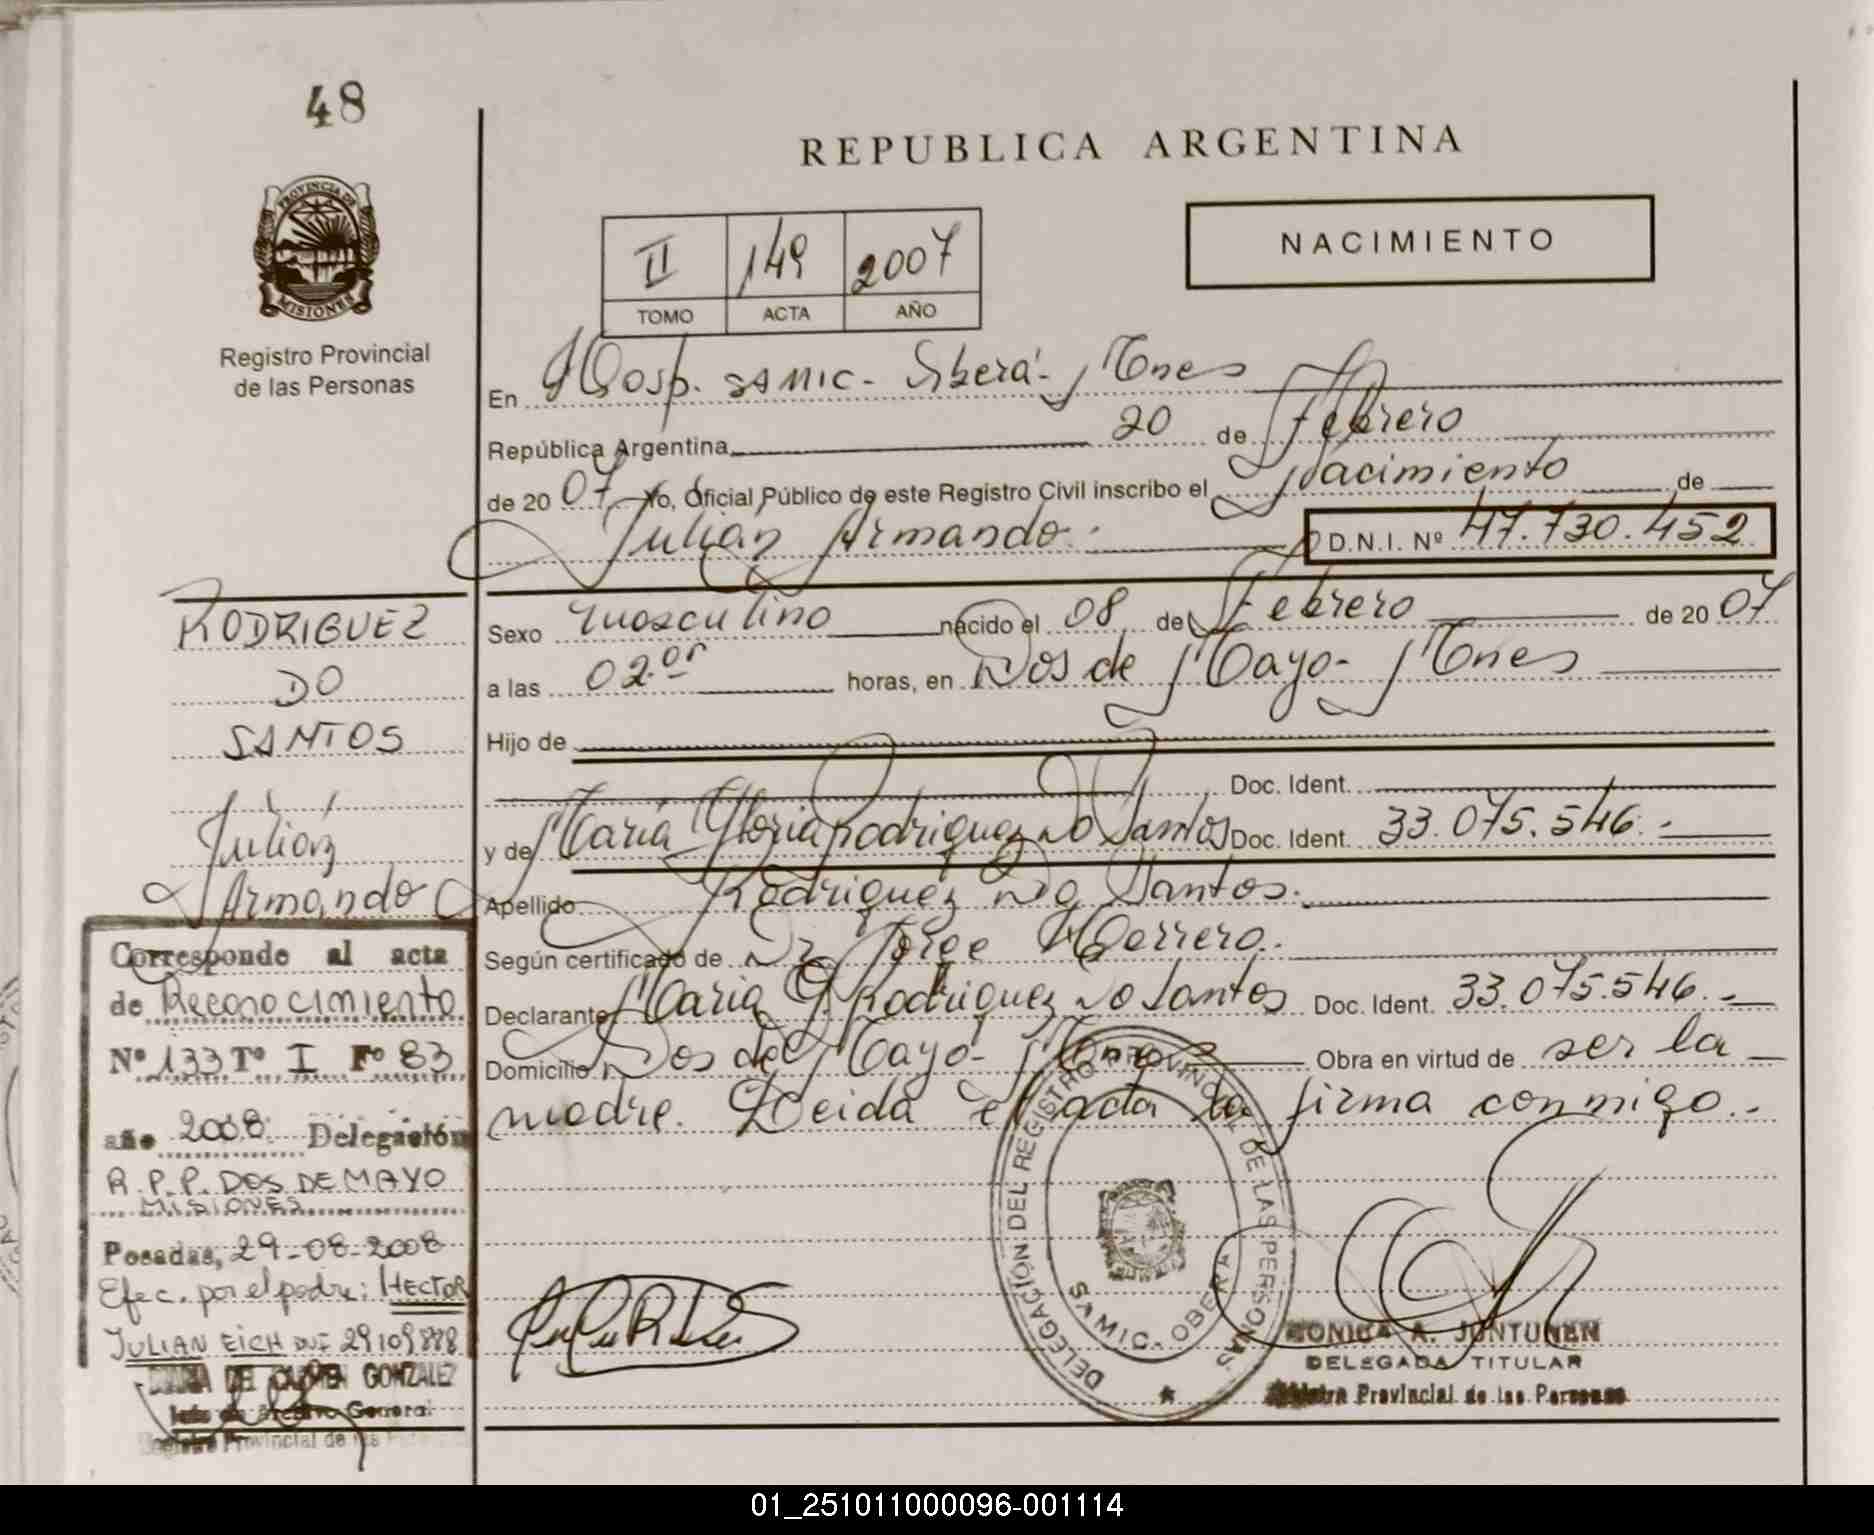 48
REPUBLICA ARGENTINA
NACIMIENTO
II 149 2007
TOMO ACTA AÑO
PROVINCIA DE MISIONES
Registro Provincial
de las Personas
En Hosp. SAMIC - Oberá - Mnes
República Argentina, 20 de Febrero
de 2007 Yo, Oficial Público de este Registro Civil inscribo el Nacimiento de
Julián Armando.- D.N.I. Nº 47.730.452
Sexo masculino nacido el 08 de Febrero de 2007
a las 02.00 horas, en Dos de Mayo - Mnes
Hijo de
Doc. Ident.
y de María Gloria Rodriguez Do Santos Doc. Ident. 33.075.546.-
Apellido Rodriguez Do Santos.
Según certificado de Dr. Jorge
Declarante Maria G. Rodriguez Do Santos Doc. Ident. 33.075.546.-
Domicilio Dos de Mayo - Mnes Obra en virtud de ser la
madre. Leída el acta la firma conmigo.-
RODRIGUEZ
DO
SANTOS
Julián
Armando
Corresponde al acta
de Reconocimiento
Nº 133 Tº I Fº 83
año 2008 Delegación
R.P.P. DOS DE MAYO
MISIONES
Posadas, 29-08-2008
Efec. por el padre: HECTOR
JULIAN EICH DNI 29109888
DEL CARMEN GONZALEZ
Jefe de Archivo General
Registro Provincial de las
DELEGACION DEL REGISTRO PROVINCIAL DE LAS PERSONAS
SAMIC - OBERA
MONICA A. JUNTUNEN
DELEGADA TITULAR
Registro Provincial de las Personas
01_251011000096-001114